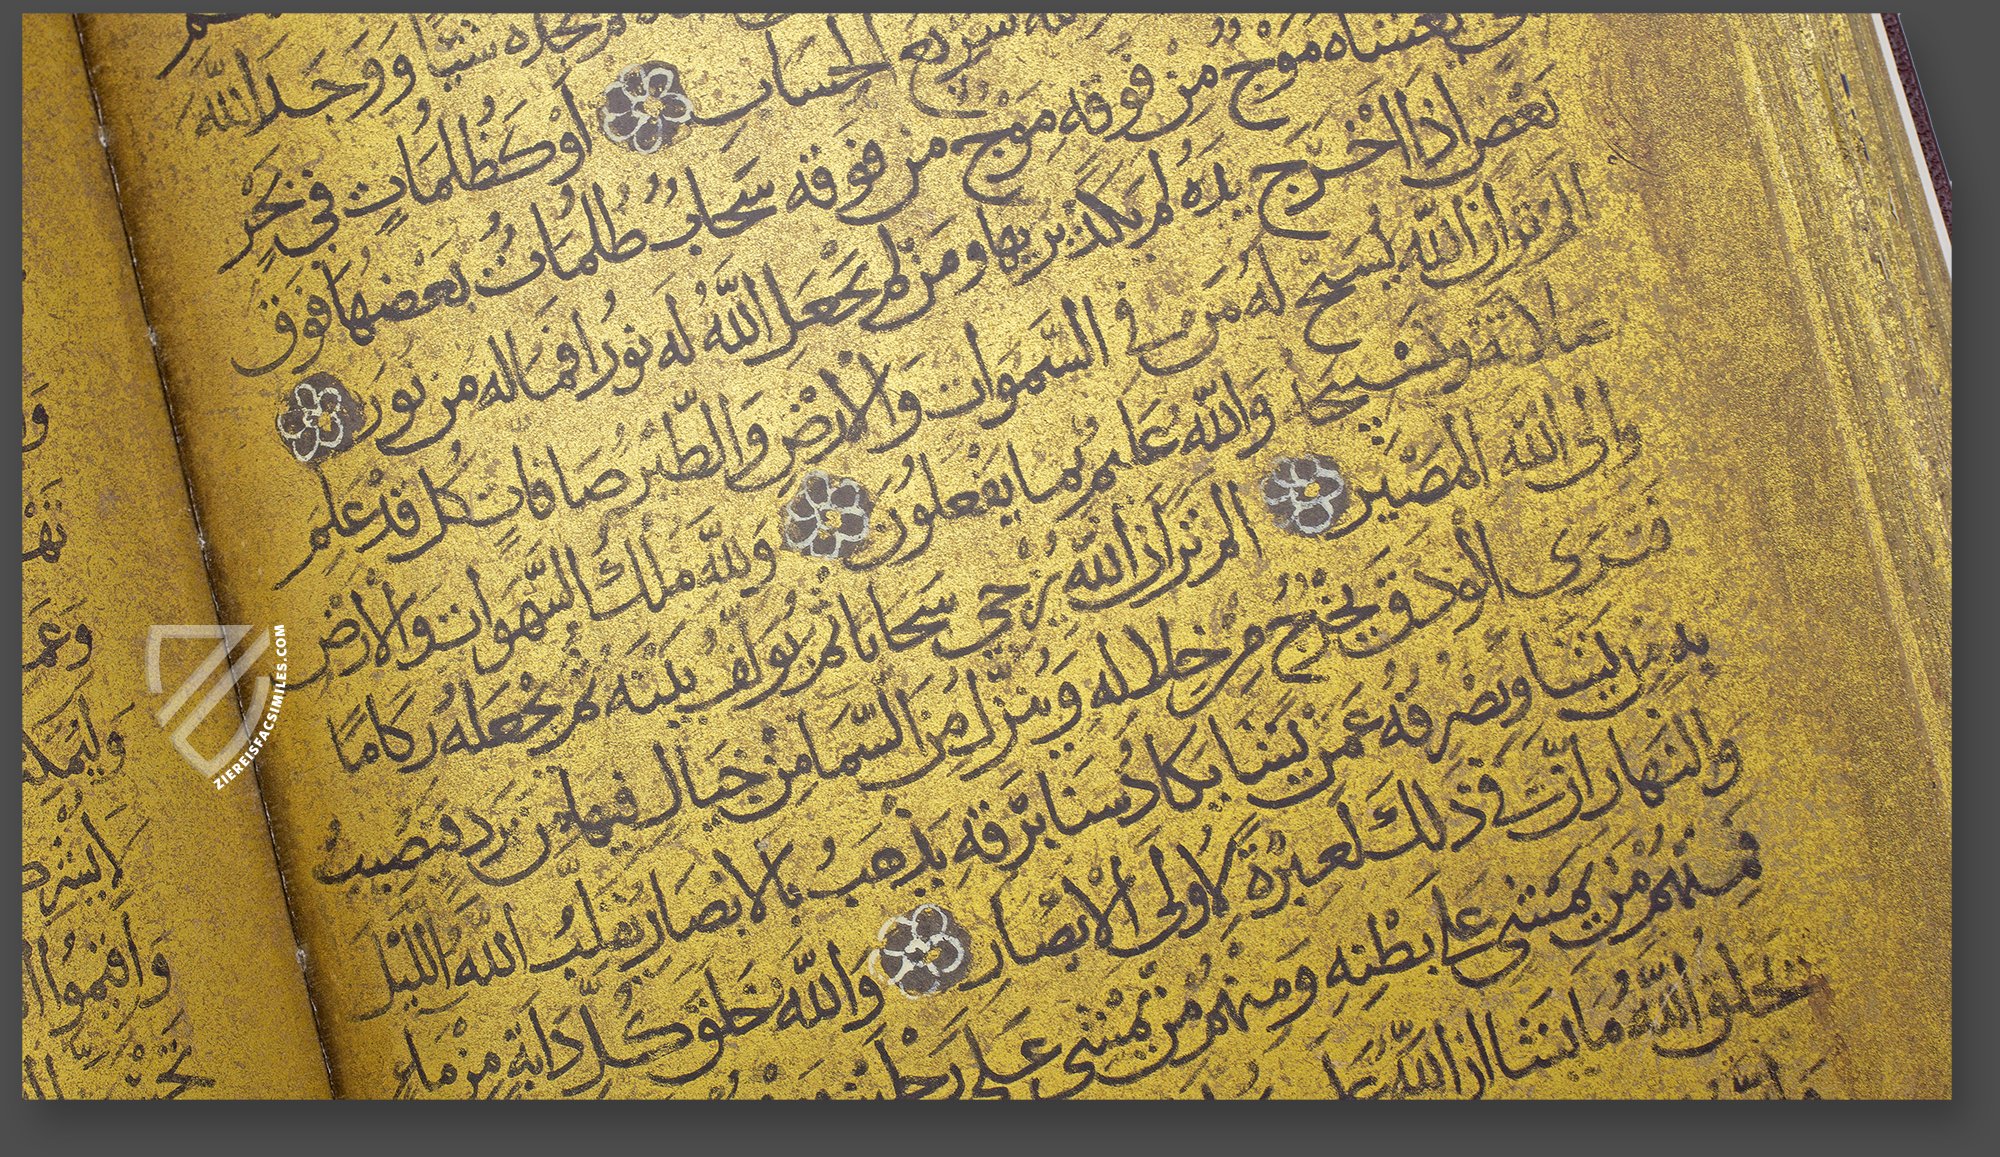 لم يجده شيئا ووجد الله
الله سريع الحساب أَوْ كَظُلُمَاتٍ في بَحْرٍ
يغشاه مَوْجٌ مِن فوقه مَوْج من فوقه سَحَابٌ ظلمات بَعْضها فوق
بَعْض اذا اخْرج يده لم يكد يريها ومن لم يَجْعل اللّه له نورا فماله من نور
الم تر ان اللّه يُسَبّح له من في السّموات والارْض والطّير صافات كل قد علم
صلاته وتسبيحه واللّه عليم بما يفعلون وللّه ملك السّموات والارْض
والى اللّه المصير الم تر ان اللّه يزجي سحابا ثم يولف بينه ثم يجعله ركاما
فترى الودق يخرج من خلاله وينزل من السّما من جبال فيها من برد فيصيب
به من يشا ويصرفه عمن يشا يكاد سنا برقه يذهب بالابصار يقلب اللّه الليل
والنهار ان في ذلك لعبرة لاولى الابصار واللّه خلق كل دابة من ماء
فمنهم من يمشى على بطنه ومنهم من يمشى على رجلين
يخلق اللّه ما يشا ان اللّه على
واقيموا
ZIEREISFACSIMILES.COM